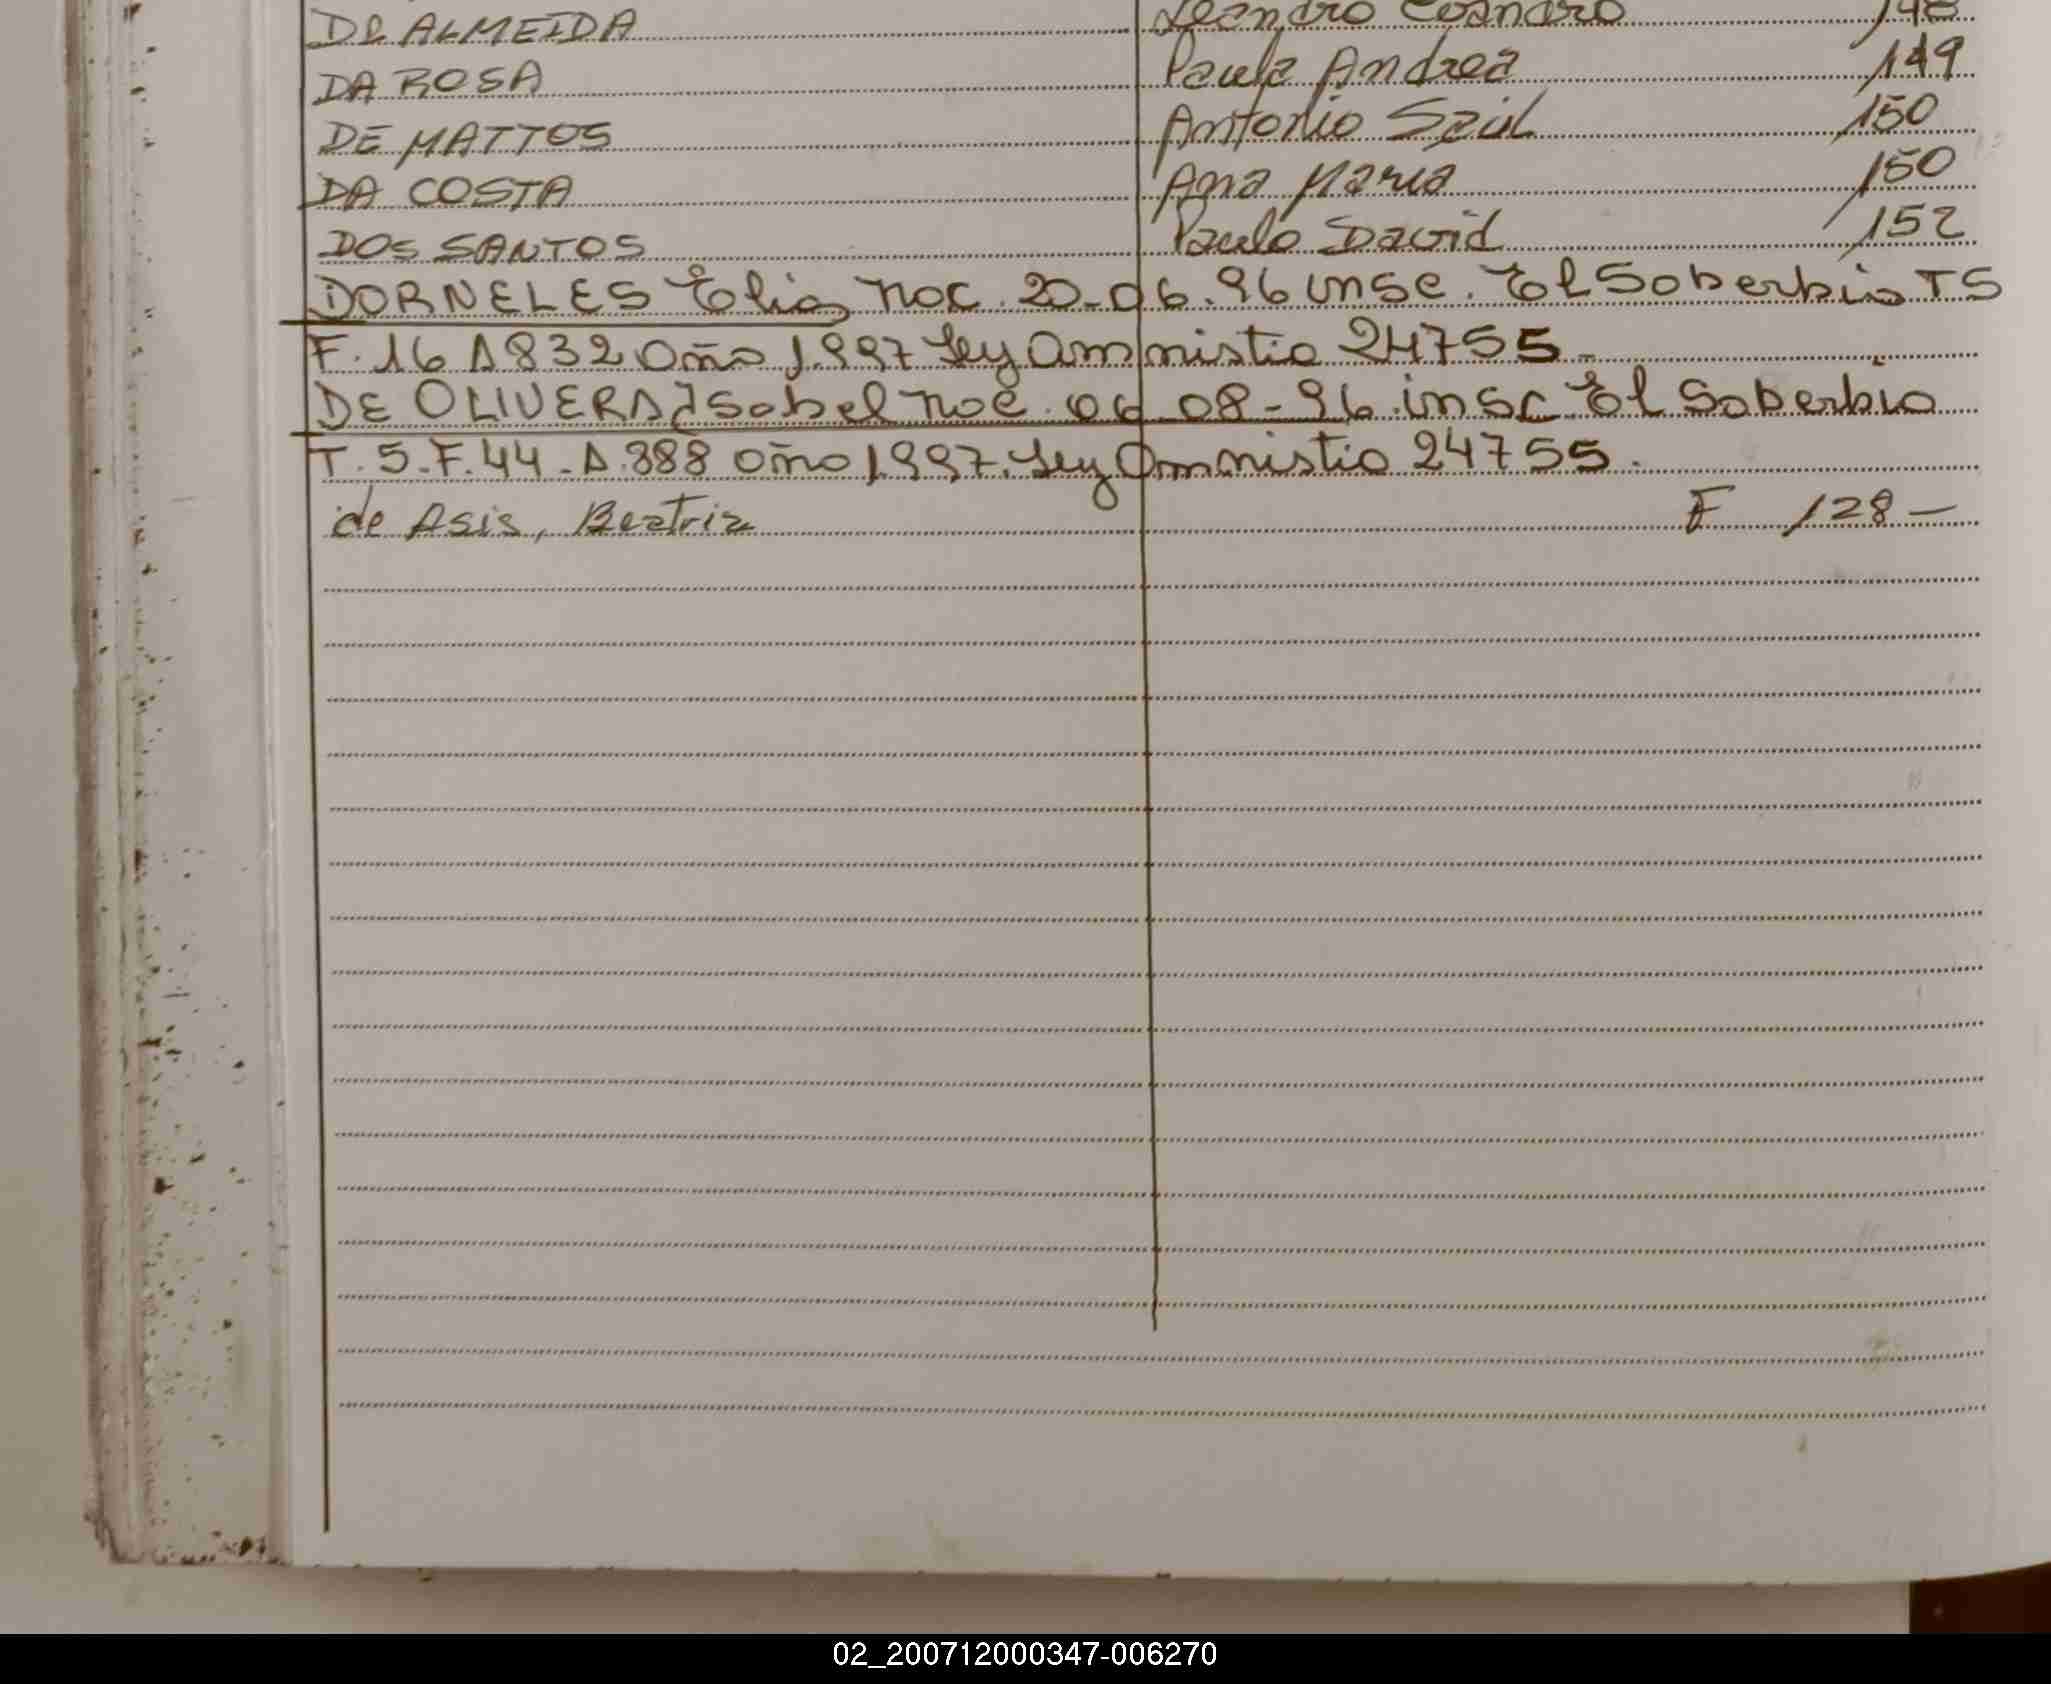 DE ALMEIDA Leandro 148
DA ROSA Paula Andrea 149
DE MATTOS Antonio Saúl 150
DA COSTA Ana Maria 150
DOS SANTOS Paulo David 152
DORNELES Elias nac. 20-06.96 insc. El Soberbio T5
F. 16 A 832 año 1.997 Ley Amnistia 24755-
DE OLIVERA Isabel nac. 06-08-96 insc El Soberbio
T. 5. F. 44 - A. 888 año 1.997. Ley Amnistia 24755.
de Asis, Beatriz F 128 -
02_200712000347-006270